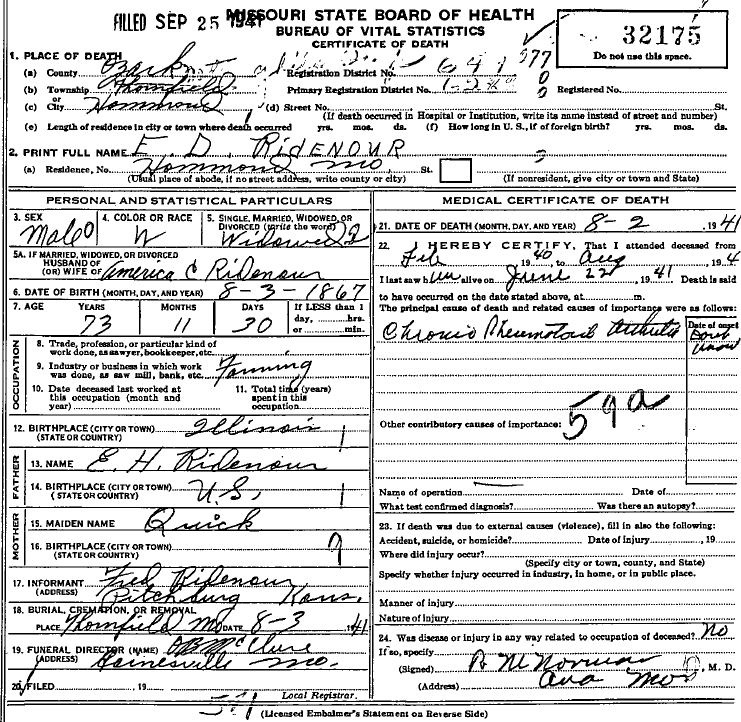 FILED SEP 25 1941 MISSOURI STATE BOARD OF HEALTH
BUREAU OF VITAL STATISTICS
CERTIFICATE OF DEATH
32175
Do not use this space.
1. PLACE OF DEATH
(a) County Ozark Registration District No. 647
(b) Township Thornfield Primary Registration District No. Registered No.
or
(c) City Hammond (d) Street No. St.
(If death occurred in Hospital or Institution, write its name instead of street and number)
(e) Length of residence in city or town where death occurred yrs. mos. ds. (f) How long in U. S., if of foreign birth? yrs. mos. ds.
2. PRINT FULL NAME E. D. RIDENOUR
(a) Residence, No. Hammond Mo. St.
(Usual place of abode, if no street address, write county or city) (If nonresident, give city or town and State)
PERSONAL AND STATISTICAL PARTICULARS
3. SEX Male
4. COLOR OR RACE W
5. SINGLE, MARRIED, WIDOWED, OR DIVORCED (write the word) Widowed 2
5A. IF MARRIED, WIDOWED, OR DIVORCED
HUSBAND OF
(OR) WIFE OF America C Ridenour
6. DATE OF BIRTH (MONTH, DAY, AND YEAR) 8-3-1867
7. AGE YEARS MONTHS DAYS If LESS than 1
73 11 30 day, hrs.
or min.
OCCUPATION
8. Trade, profession, or particular kind of
work done, as sawyer, bookkeeper, etc.
9. Industry or business in which work
was done, as saw mill, bank, etc. Farming
10. Date deceased last worked at
this occupation (month and
year)
11. Total time (years)
spent in this
occupation
12. BIRTHPLACE (CITY OR TOWN) Illinois
(STATE OR COUNTRY)
FATHER
13. NAME E. H. Ridenour
14. BIRTHPLACE (CITY OR TOWN) U.S.
(STATE OR COUNTRY)
MOTHER
15. MAIDEN NAME Quick
16. BIRTHPLACE (CITY OR TOWN) 9
(STATE OR COUNTRY)
17. INFORMANT Fred Ridenour
(ADDRESS) Pittsburg Kans.
18. BURIAL, CREMATION, OR REMOVAL
PLACE Thornfield Mo DATE 8-3 1941
19. FUNERAL DIRECTOR (NAME) McClure
(ADDRESS) Gainesville Mo.
20. FILED , 19
Local Registrar.
MEDICAL CERTIFICATE OF DEATH
21. DATE OF DEATH (MONTH, DAY, AND YEAR) 8-2 1941
22. I HEREBY CERTIFY, That I attended deceased from
Feb 1940 to Aug 194
I last saw him alive on June 22 1941 Death is said
to have occurred on the date stated above, at m.
The principal cause of death and related causes of importance were as follows:
Date of onset
Chronic Rheumatoid Arthritis Dont Know
Other contributory causes of importance: 59a
Name of operation Date of
What test confirmed diagnosis? Was there an autopsy?
23. If death was due to external causes (violence), fill in also the following:
Accident, suicide, or homicide? Date of injury , 19
Where did injury occur?
(Specify city or town, county, and State)
Specify whether injury occurred in industry, in home, or in public place.
Manner of injury
Nature of injury
24. Was disease or injury in any way related to occupation of deceased? No
If so, specify
(Signed) Norman , M. D.
(Address) Ava Mo
(Licensed Embalmer's Statement on Reverse Side)